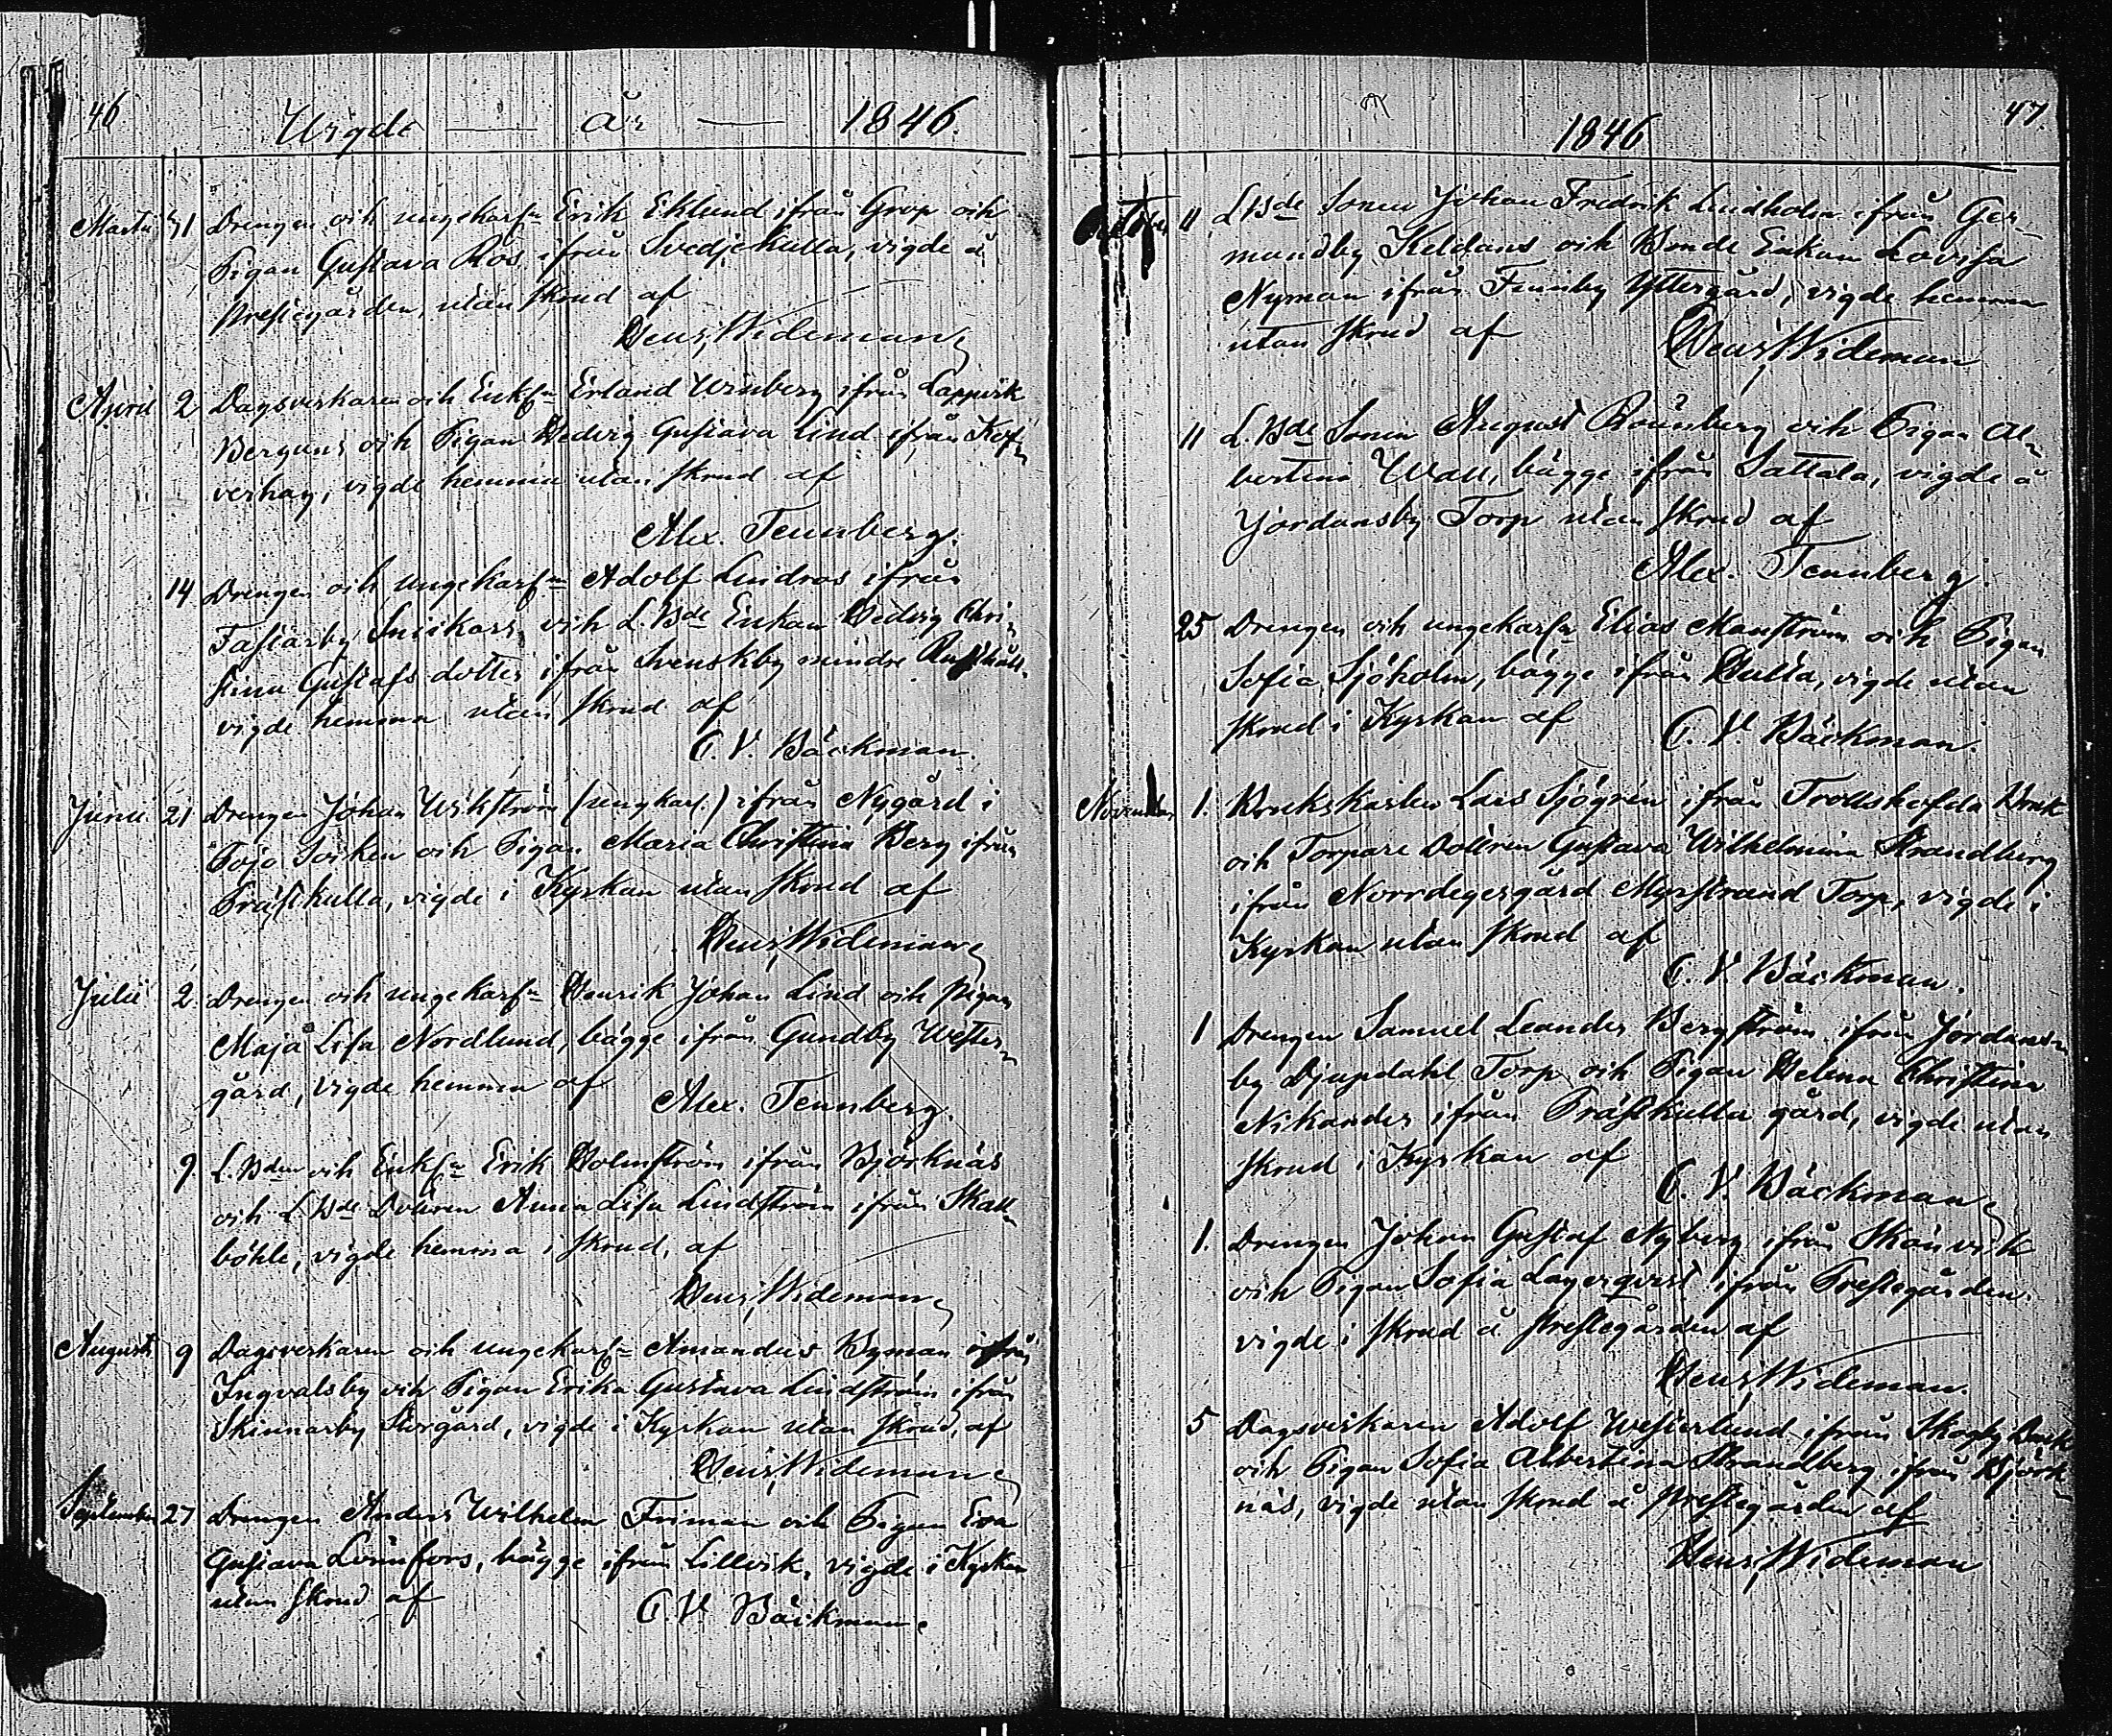 46
Wigde — År — 1846.
Martii 31 Drengen och ungekarln Erik Eklund ifrån Grop och
Pigan Gustava Ros ifrån Svedjekulla, vigde å
Prestegården, utan skrud af
Henr. Wideman
April 2 Dagsverkaren och Enkln Erland Winberg ifrån Lappvik
Bergans och Pigan Hedvig Gustava Lind ifrån Kof-
verhag, vigde hemma utan skrud af
Alex. Tennberg.
14 Drengen och ungekarln Adolf Lindros ifrån
Fastarby Snickars och L.Bde Enkan Hedvig Chri-
stina Gustafs dotter ifrån Svenskby mindre Rusthåll.
vigde hemma utan skrud af
C. V. Bäckman.
Junii 21 Drengen Johan Wikström (ungkarl.) ifrån Nygård i
Pojo Socken och Pigan Maria Christina Berg ifrån
Präskulla, vigde i Kyrkan utan skrud af
Henr. Wideman
Julii 2. Drengen och ungekarln Henrik Johan Lind och pigan
Maja Lisa Nordlund, bägge ifrån Gundby Wester-
gård, vigde hemma af
Alex. Tennberg.
9. L.Bden och Enkln Erik Holmström ifrån Björknäs
och L.Bde Dottren Anna Lisa Lindström ifrån Skall-
böhle, vigde hemma i skrud, af
Henr. Wideman
Augusti 9 Dagsverkaren och ungekarln Amandus Byman ifrån
Ingvalsby och Pigan Erika Gustava Lindström ifrån
Skinnarby Storgård, vigde i Kyrkan utan skrud, af
Henr. Wideman
September 27 Drengen Anders Wilhelm Friman och Pigan Eva
Gustava Lönnfors, bägge ifrån Lillvik, vigde i Kyrkan
utan skrud af
C. V. Bäckman.
47.
1846
October 11 L.Bde Sonen Johan Fredrik Lindholm ifrån Ger-
mundby Keldans och Bonde Enkan Lovisa
Nyman ifrån Finnby Yttergård, vigde hemma
utan skrud af
Henr. Wideman
11 L.Bde Sonen August Rönnberg och Pigan Al-
bertina Wall, bägge ifrån Sattala, vigde å
Jordansby Torp utan skrud af
Alex. Tennberg.
25 Drengen och ungekarln Elias Manström och Pigan
Sofia Sjöholm, bägge ifrån Hulta, vigde utan
skrud i Kyrkan af
C. V. Bäckman.
November 1. Brukskarlen Lars Sjögrén ifrån Trollshofda Bruk
och Torpare Dottren Gustava Wilhelmina Strandberg
ifrån Norrdegergård Myrstrand Torp, vigde i
Kyrkan utan skrud af
C. V. Bäckman.
1 Drengen Samuel Leander Bergström ifrån Jordans-
by Djupdahl Torp och Pigan Helena Christina
Nikander ifrån Präskulla gård, vigde utan
skrud i Kyrkan af
C. V. Bäckman
1. Drengen Johan Gustaf Nyberg ifrån Skånvik
och Pigan Sofia Lagerqvist ifrån Prestegården.
vigde i skrud å Prestegården af
Henr. Wideman.
5 Dagsverkaren Adolf Westerlund ifrån Skogby Bruk
och Pigan Sofia Albertina Strandberg ifrån Björk-
näs, vigde utan skrud å Prestegården af
Henr. Wideman